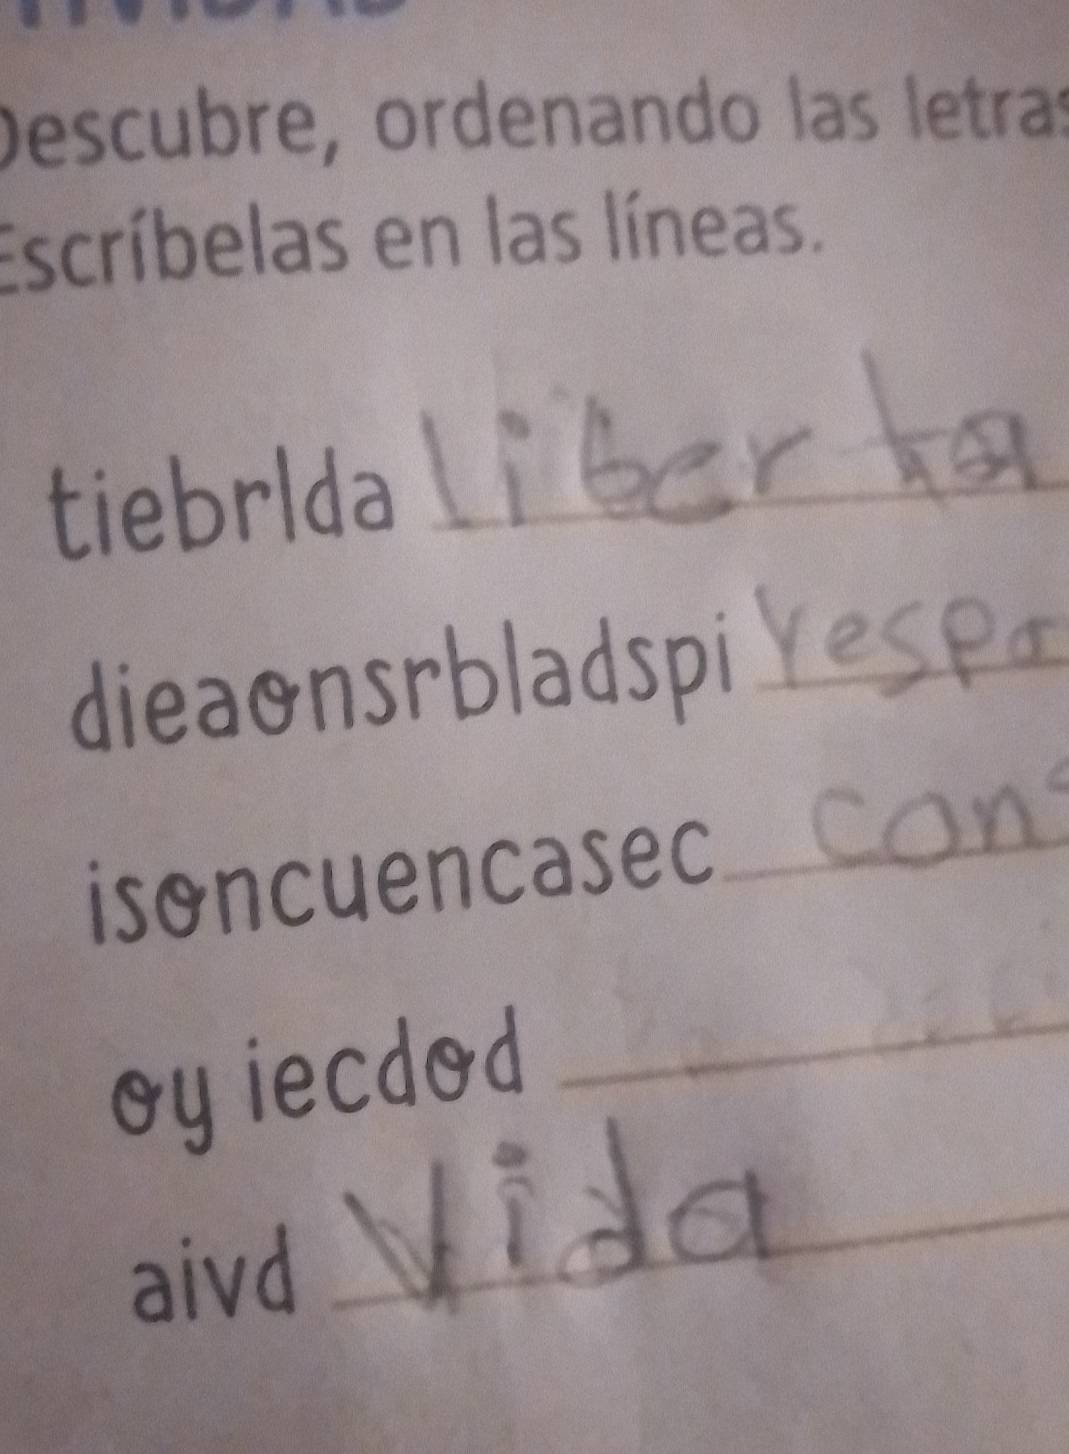 Descubre, ordenando las letras
Escríbelas en las líneas.
tiebrlda liberta
dieaonsrbladspi respo
isoncuencasec cons
oy iecdod
aivd vida